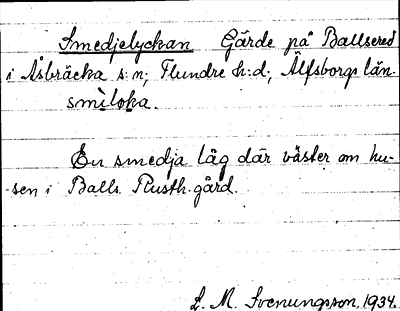 Smedjelyckan Gärde på Ballsered
i Åsbräcka s:n; Flundre h:d; Älfsborgs län.
smìloka.
En smedja låg där väster om hu-
sen i Balls. Rusth. gård.
L. M. Svenungsson 1934.